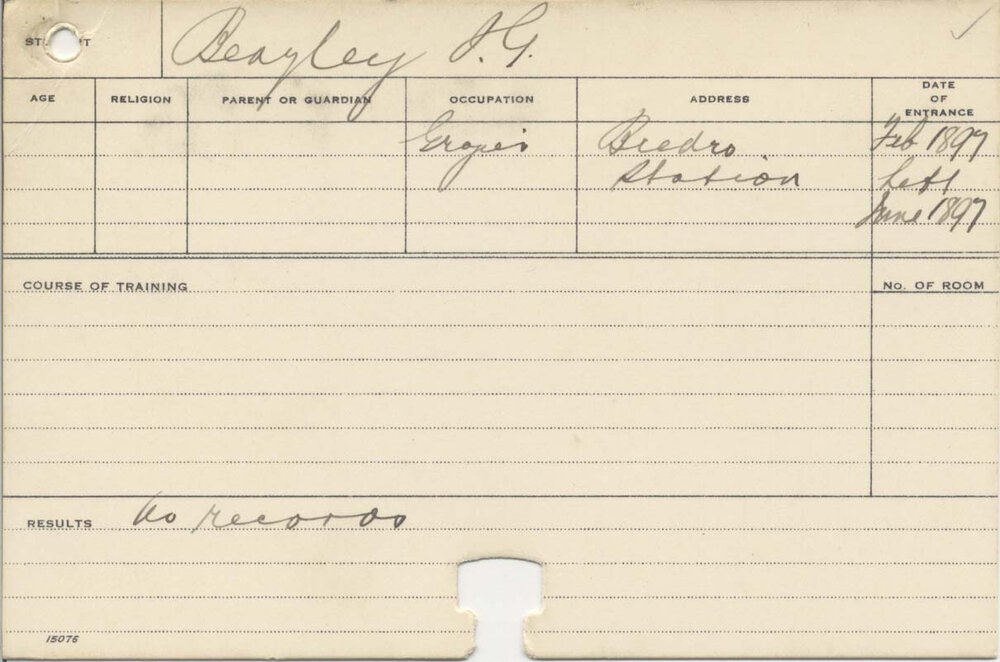 Beagley J. G.
AGE RELIGION PARENT OR GUARDIAN OCCUPATION ADDRESS DATE OF ENTRANCE
Grazier Feb 1897
Station Left
June 1897
COURSE OF TRAINING No. OF ROOM
RESULTS No records
15076